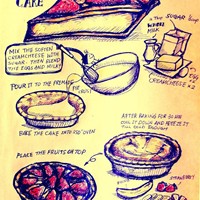 CAKE
SUGAR
WHOLE
MILK
MIX THE SOFTEN
CREAMCHEESE WITH
SUGAR. THEN BLEND
THE EGGS AND MILK!
CREAMCHEESE
EGG
x2
POUR IT TO THE PREMADE
PIE CRUST
BAKE THE CAKE INTO 350° OVEN
AFTER BAKING FOR 30MIN
PLACE THE FRUITS ON TOP
STRAWBERRY